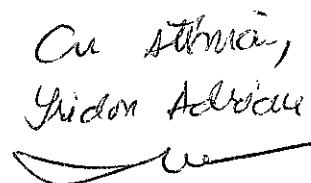 Cu stimă,
Gridon Adrian